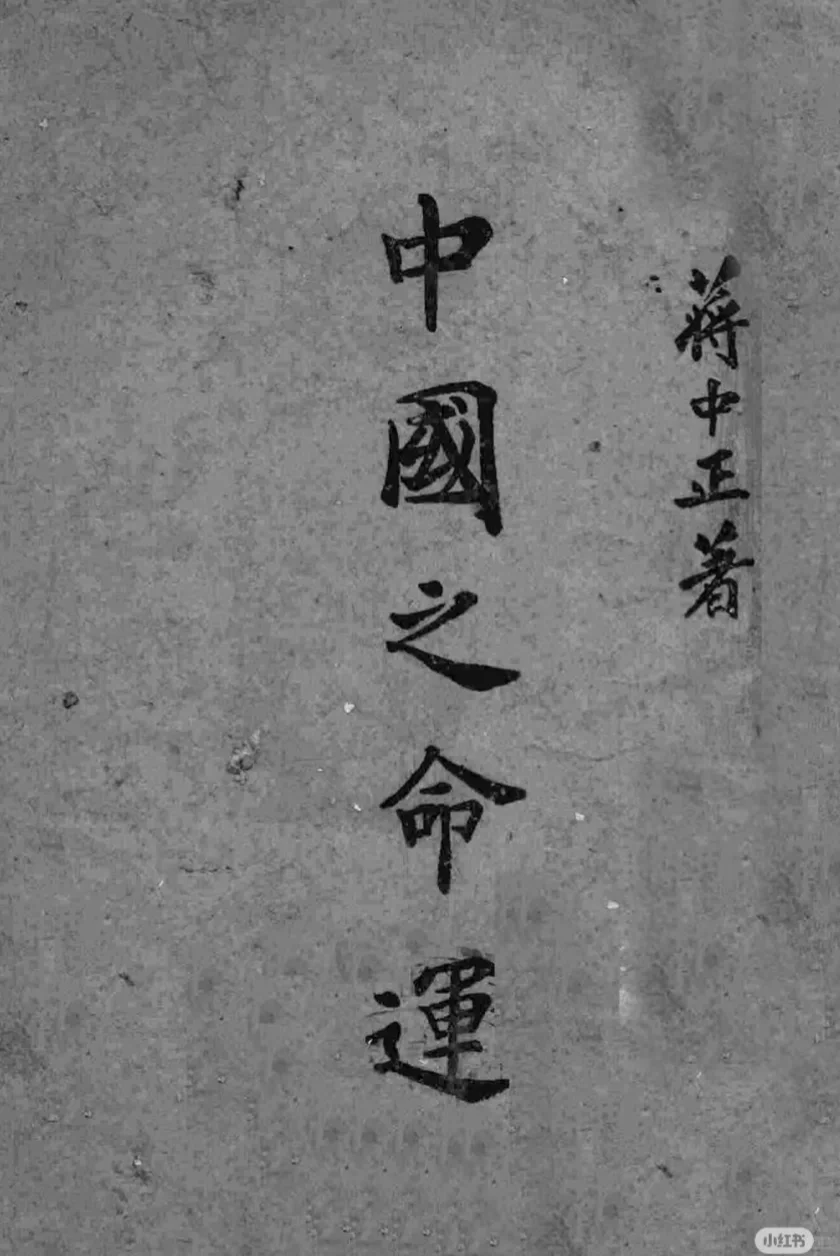 蔣中正著
中國之命運
小红书